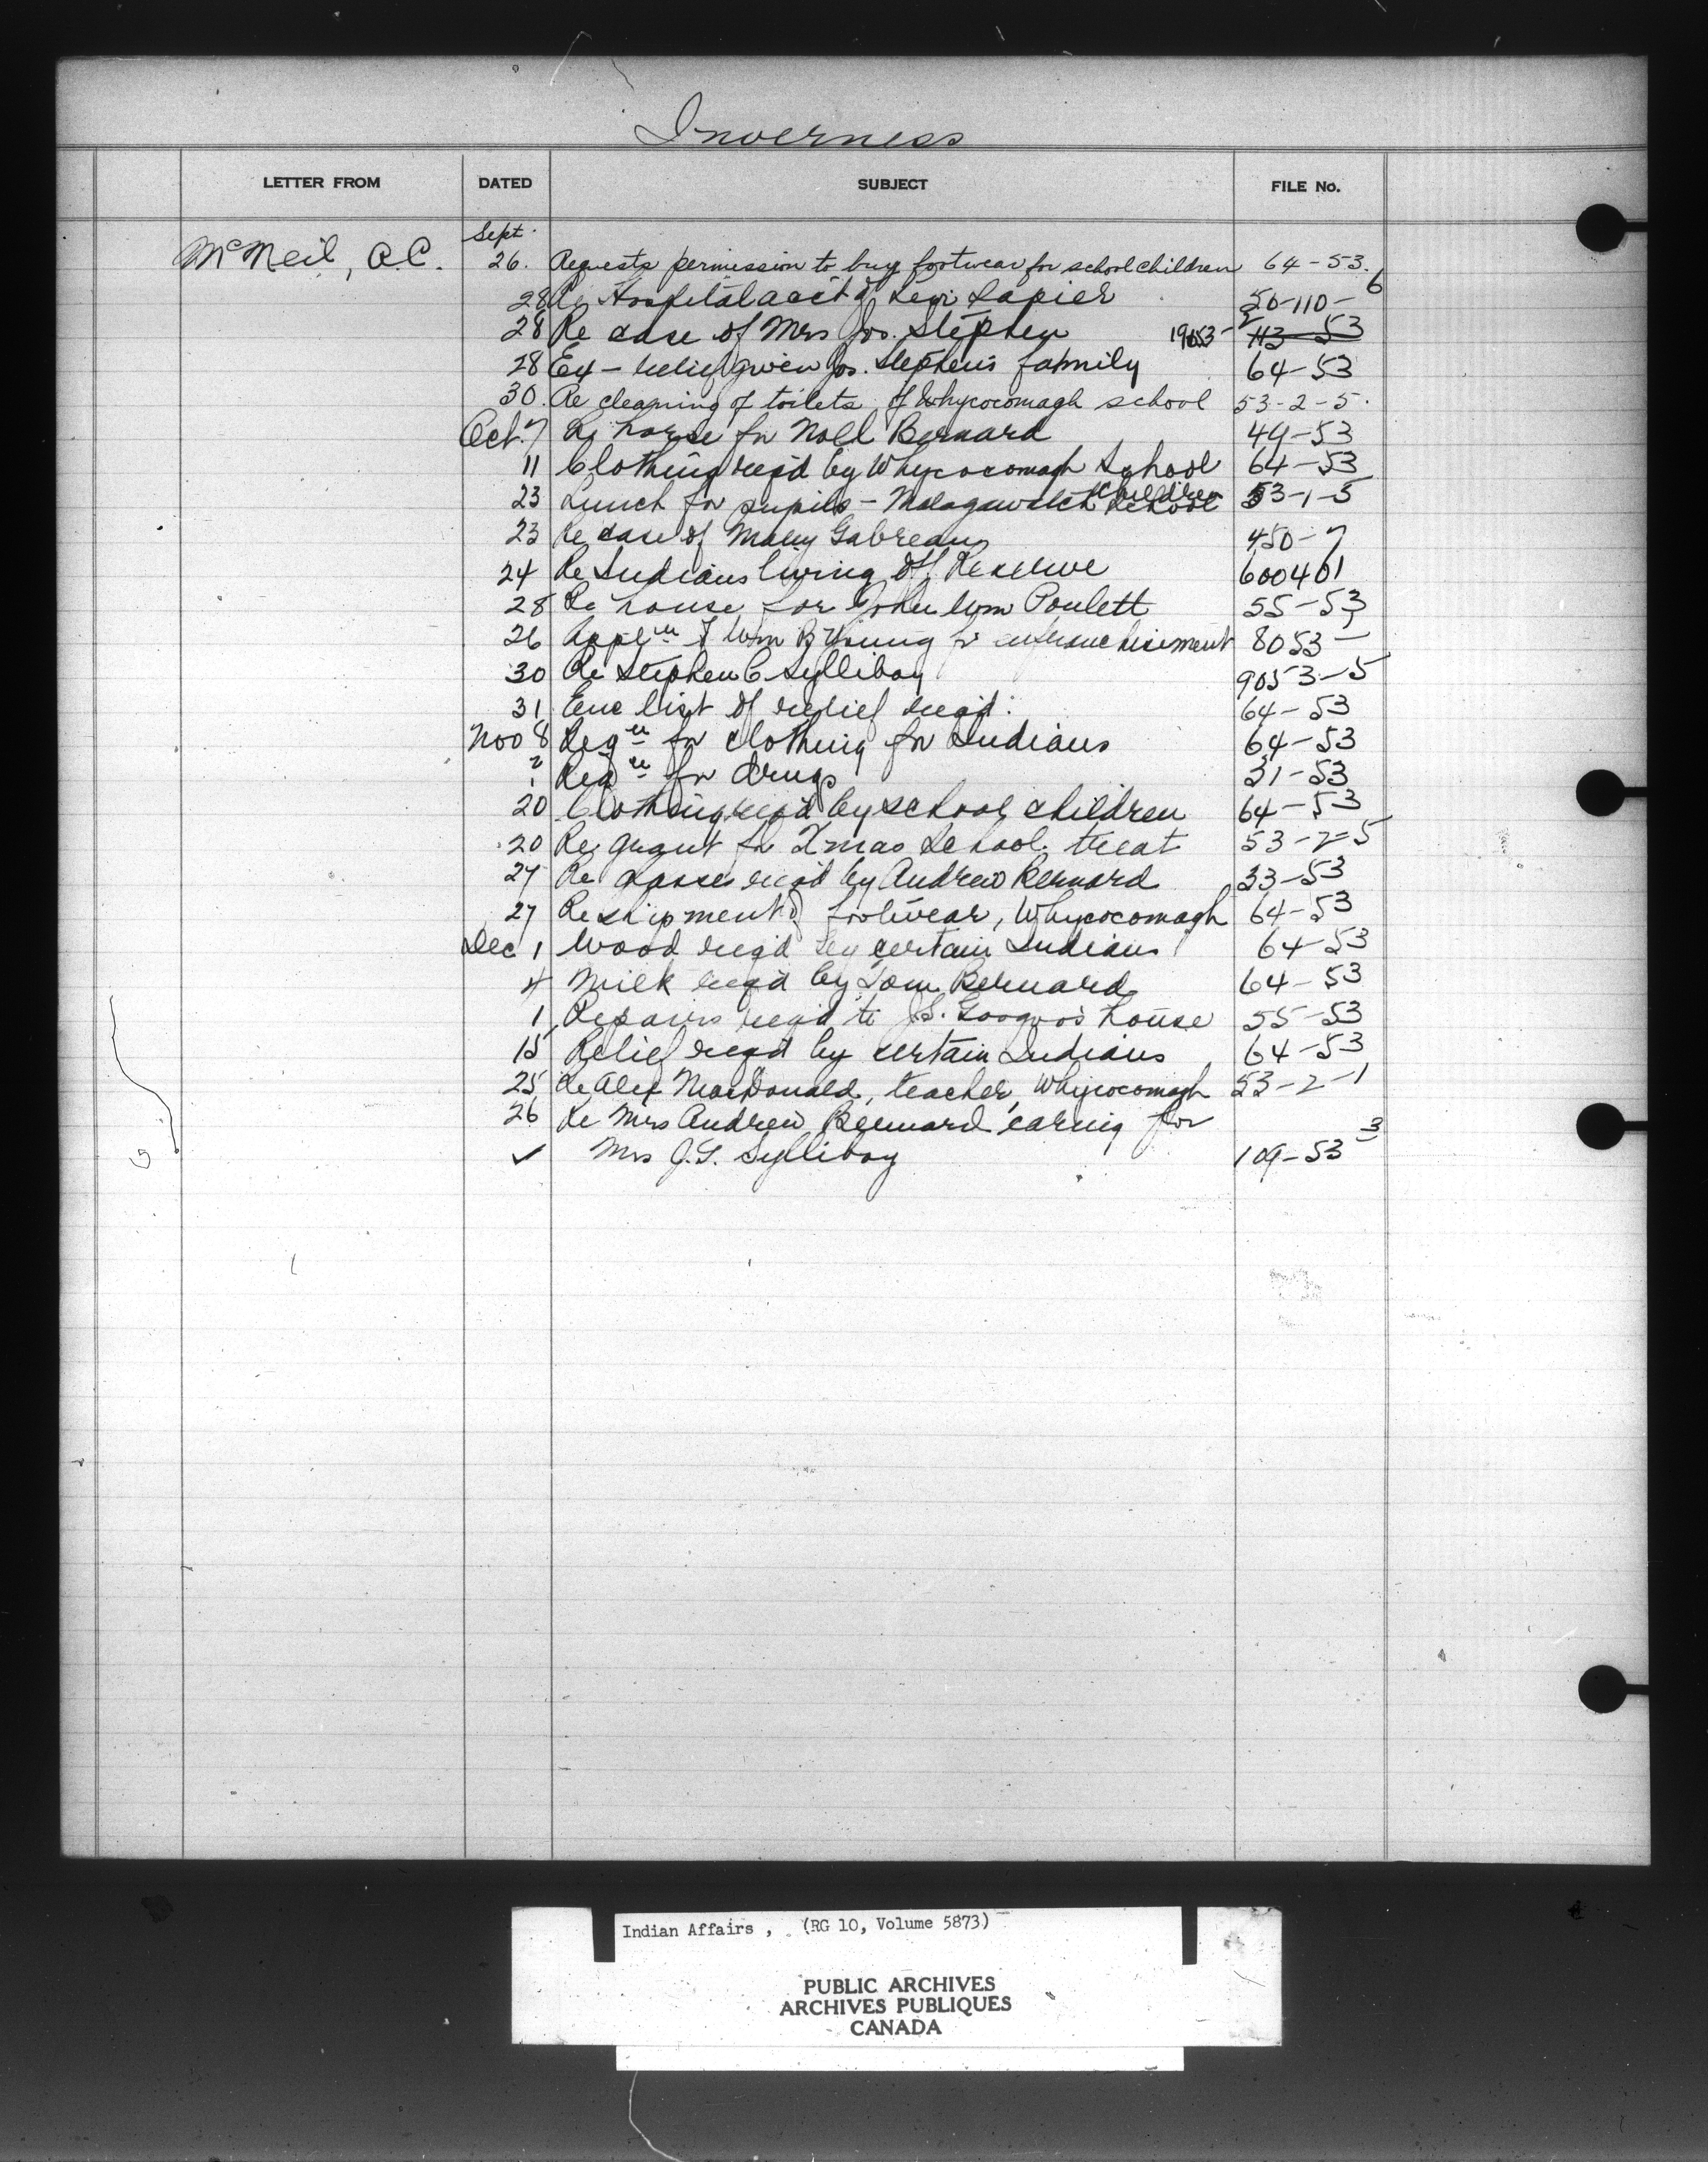 Inverness
LETTER FROM DATED SUBJECT FILE No.
Sept.
McNeil, A.C. 26. Requests permission to buy footwear for school children 64-53.
28 Re Hospital acct of Levi Lapier 50-110-6
28 Re case of Mrs Jos. Stephen 19053-2 43-53
28 Ex- relief given Jos. Stephen's family 64-53
30. Re cleaning of toilets of Whycocomagh school 53-2-5.
Oct. 7 Re horse for Noll Bernard 49-53
11 Clothing req'd by Whycocomagh School children 64-53
23 Lunch for pupils - Malagawatch School 53-1-5
23 Re case of Mary 450-7
24 Re Indians living off Reserve 600401
28 Re house for John Wm Poulett 55-53
26 Appl'n of Wm B Young for enfranchisement 8053-
30 Re Stephen C Sylliboy 9053-5
31 Enc list of relief req'd. 64-53
Nov 8 Reqn for clothing for Indians 64-53
? Reqn for drugs 31-53
20 Clothing req'd by school children 64-53
20 Re grant for Xmas School treat 53-2-5
27 Re glasses req'd by Andrew Bernard 33-53
27 Re shipment of footwear, Whycocomagh 64-53
Dec 1 Wood req'd by certain Indians 64-53
4 Milk req'd by Tom Bernard 64-53
1 Repairs req'd to J.S. Googoo's house 55-53
15 Relief req'd by certain Indians 64-53
25 Re Alex MacDonald, teacher, Whycocomagh 53-2-1
26 Re Mrs Andrew Bernard caring for
✓ Mrs J.S. Sylliboy 109-53 3
Indian Affairs , (RG 10, Volume 5873)
PUBLIC ARCHIVES
ARCHIVES PUBLIQUES
CANADA